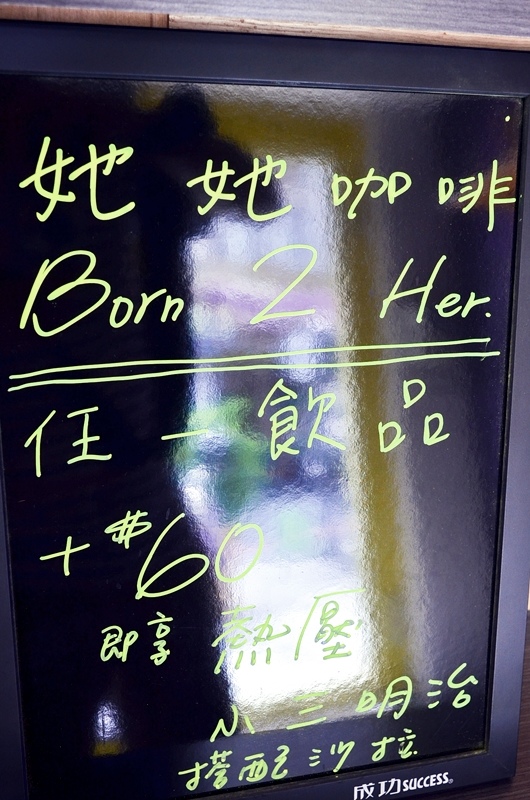 她 她 咖 啡
Born 2 Her.
任 一 飲 品
+ $60
即享 熱壓
小 三 明 治
搭配沙拉
成功 SUCCESS®